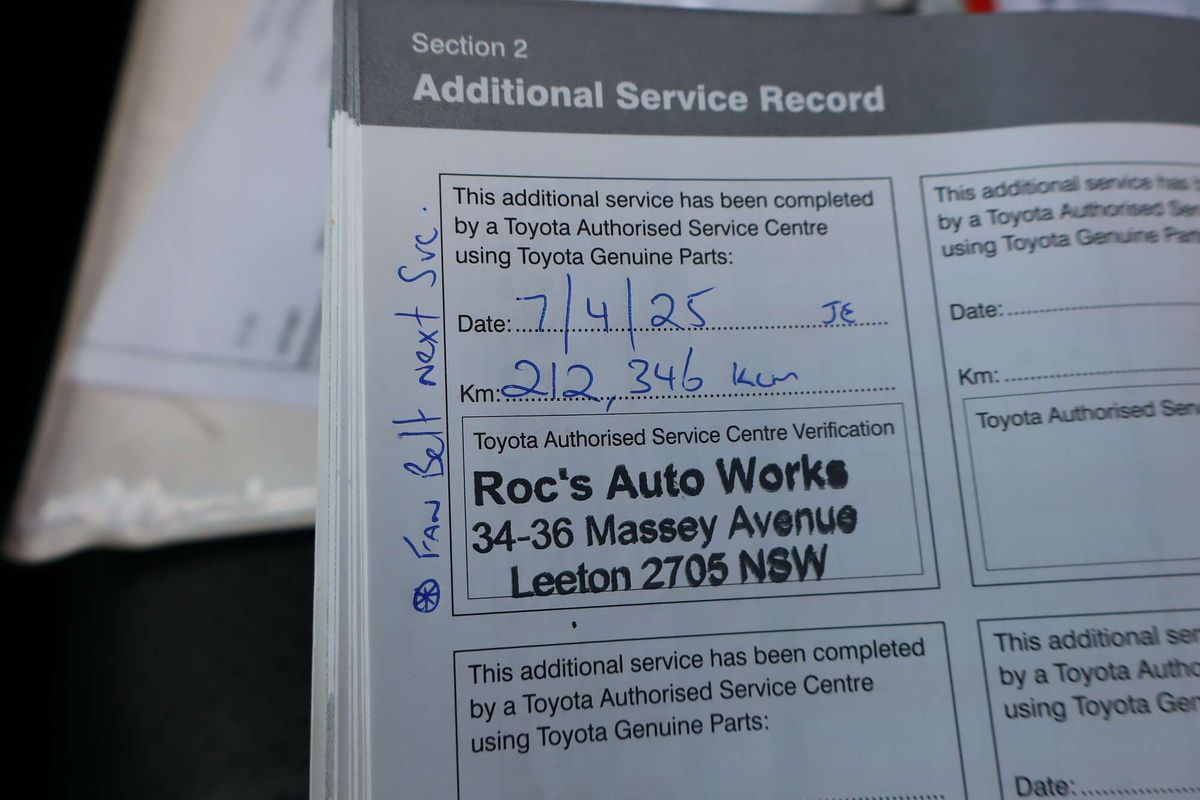 Section 2
Additional Service Record
This additional service has been completed
by a Toyota Authorised Service Centre
using Toyota Genuine Parts:
Date: 7/4/25 JE
Km: 212,346 km
Toyota Authorised Service Centre Verification
Roc's Auto Works
34-36 Massey Avenue
Leeton 2705 NSW
FAN Belt next Svc.
This additional service has
by a Toyota Authorised
using Toyota Genuine
Date:
Km:
Toyota Authorised
This additional service has been completed
by a Toyota Authorised Service Centre
using Toyota Genuine Parts:
This additional
by a Toyota
using Toyota
Date: